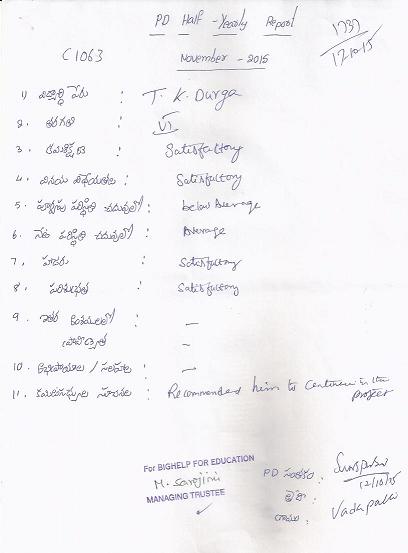 PD Half-Yearly Report
1737
12/10/15
C1063
November - 2015
1) విద్యార్థి పేరు : T. K. Durga
2. తరగతి : VI
3. క్రమశిక్షణ : Satisfactory
4. వినయ విధేయతలు : Satisfactory
5. పూర్వపు పరిస్థితి చదువులో : below Average
6. నేటి పరిస్థితి చదువులో : Average
7. హాజరు : Satisfactory
8. పరిశుభ్రత : Satisfactory
9. ఇతర అంశములలో : —
ప్రావీణ్యత —
10. అభిప్రాయాలు / సలహాలు : —
11. సూచనలు : Recommended him to continue in the
project
For BIGHELP FOR EDUCATION
M. Sarojini
MANAGING TRUSTEE
PD సంతకం :
12/10/15
గ్రామం : Vadapalli